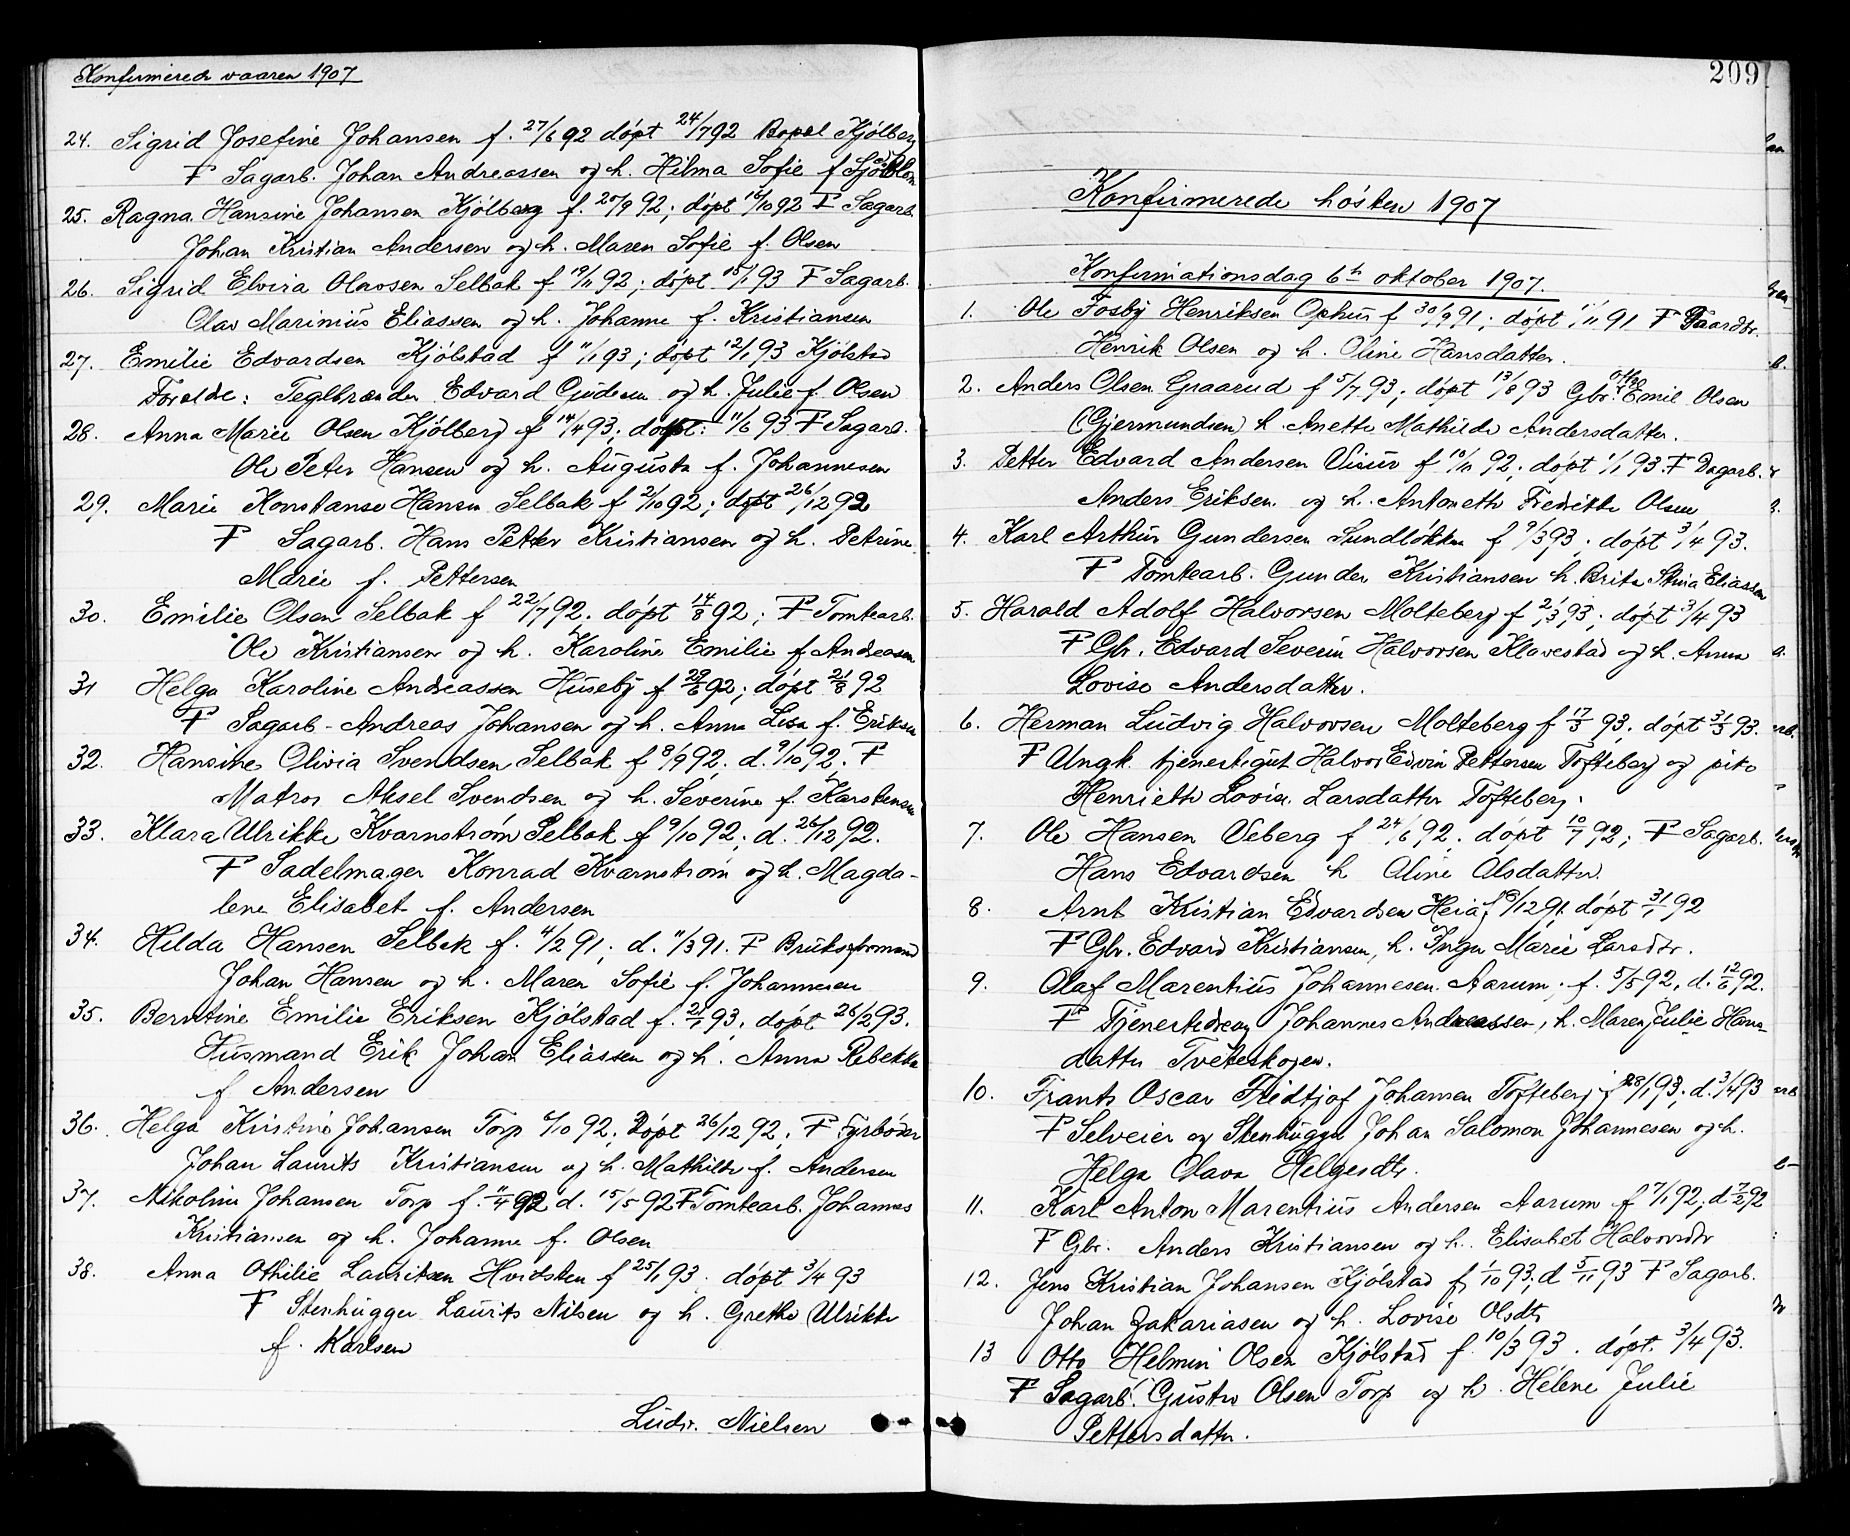 Konfirmerede vaaren 1907
24. Sigrid Josefine Johansen f. 27/6 92 döpt 24/7 92 Bopæl Kjölberg
F Sagarb. Johan Andreassen og h. Hilma Sofie f.
25. Ragna Hansine Johansen Kjölberg f. 20/9 92; döpt 16/10 92 F Sagarb.
Johan Kristian Andersen og h. Maren Sofie f. Olsen
26. Sigrid Elvira Olavsen Selbak f 19/11 92; döpt 15/1 93 F Sagarb.
Olav Marinius Eliassen og h. Johanne f. Kristiansen
27. Emilie Edvardsen Kjölstad f 11/1 93; döpt 12/1 93 Kjölstad
Forelde: Teglbrænder Edvard Gudesen og h. Julie f. Olsen
28. Anna Marie Olsen Kjölberg f 14/4 93; döpt: 11/6 93 F Sagarb.
Ole Peter Hansen og h. Augusta f. Johannesen
29. Marie Konstanse Hansen Selbak f 2/10 92; döpt 26/12 92
F Sagarb. Hans Petter Kristiansen og h. Petrine
Marie f. Pettersen
30. Emilie Olsen Selbak f 22/7 92; döpt 14/8 92; F Tomtearb.
Ole Kristiansen og h. Karoline Emilie f Andreasen
31 Helga Karoline Andreassen Huseby f 29/6 92; döpt 21/8 92
F Sagarb - Andreas Johansen og h. Anna Lisa f. Eriksen
32. Hansine Olivia Svendsen Selbak f 8/9 92; d. 9/10 92; F
Matros Aksel Svendsen og h. Severine f. Karstensen
33. Klara Ulrikke Kvarnström Selbak f 9/10 92; d. 26/12 92.
F Sadelmager Konrad Kvarnström og h. Magda-
lene Elisabet f. Andersen
34. Hilda Hansen Selbak f. 4/2 91; d. 11/3 91. F Bruksformand
Johan Hansen og h. Maren Sofie f. Johannesen
35. Berntine Emilie Eriksen Kjölstad f. 21/1 93; döpt 26/2 93.
Husmand Erik Johan Eliassen og h. Anna Rebekka
f Andersen
36. Helga Kristine Johansen Torp 6/10 92; Döpt 26/12 92; F Fyrböder
Johan Laurits Kristiansen og h. Mathilde f. Andersen
37. Nikoline Johansen Torp f. 11/4 92 d. 15/5 92 F Tomtearb. Johannes
Kristiansen og h. Johanne f. Olsen
38. Anna Othilie Lauritsen Hvidsten f 25/1 93; döpt 3/4 93
F Stenhugger Laurits Nilsen og h. Grethe Ulrikke
f. Karlsen
Ludv. Nielsen
209
Konfirmerede hösten 1907
Konfirmationsdag 6te oktober 1907.
1. Ole Fosby Henriksen Ophus f 30/9 91; döpt 1/11 91 F Gaardbr.
Henrik Olsen og h. Oline Hansdatter.
2. Anders Olsen Graarud f 5/7 93; döpt 13/8 93 Gbr. Otto Emil Olsen
(Gjermundsen) h. Anette Mathilde Andersdatter.
3. Petter Edvard Andersen Visur f 10/11 92; döpt 1/1 93. F Dagarb.
Anders Eriksen og h. Antonette Fredrikke Olsen
4. Karl Arthur Gundersen Sundlökken f 9/3 93; döpt 3/4 93.
F Tomtearb. Gunder Kristiansen h. Brita Stina Eliassen
5. Harald Adolf Halvorsen Molteberg f 2/3 93; döpt 3/4 93
F Gbr. Edvard Severin Halvorsen Klavestad og h. Anna
Lovise Andersdatter.
6. Herman Ludvig Halvorsen Molteberg f 17/3 93; döpt 31/3 93.
F Ungk. tjenestegut Halvor Edvin Pettersen Tofteberg og pike
Henriette Lovise Larsdatter Tofteberg.
7. Ole Hansen Veberg f 24/6 92; döpt 10/7 92; F Sagarb.
Hans Edvardsen h Oline Olsdatter.
8. Arnt Kristian Edvardsen Heia f 18/12 91. döpt 31/1 92
F Gbr. Edvard Kristiansen, h. Inga Marie Larsdtr.
9. Olaf Marentius Johannesen Aarum, f. 5/5 92, d. 12/6 92.
F Tjenestedreng Johannes Andreassen, h. Maren Julie Hans-
datter Tveterkogen.
10. Frants Oscar Fridtjof Johansen Tofteberg f 28/1 93; d. 3/4 93
F Selveier og Stenhugger Johan Salomon Johannesen og h.
Helga Olava Helgesdtr.
11. Karl Anton Marentius Andersen Aarum f 7/1 92; d 7/2 92
F Gbr. Anders Kristiansen og h. Elisabet Halvorsdtr
12. Jens Kristian Johansen Kjölstad f 1/10 93; d 5/11 93 F Sagarb.
Johan Zakariasen og h. Lovise Olsdtr
13 Otto Helmin Olsen Kjölstad f. 10/3 93. döpt. 3/4 93.
F Sagarb. Gustav Olsen Torp og h. Helene Julie
Pettersdatter.